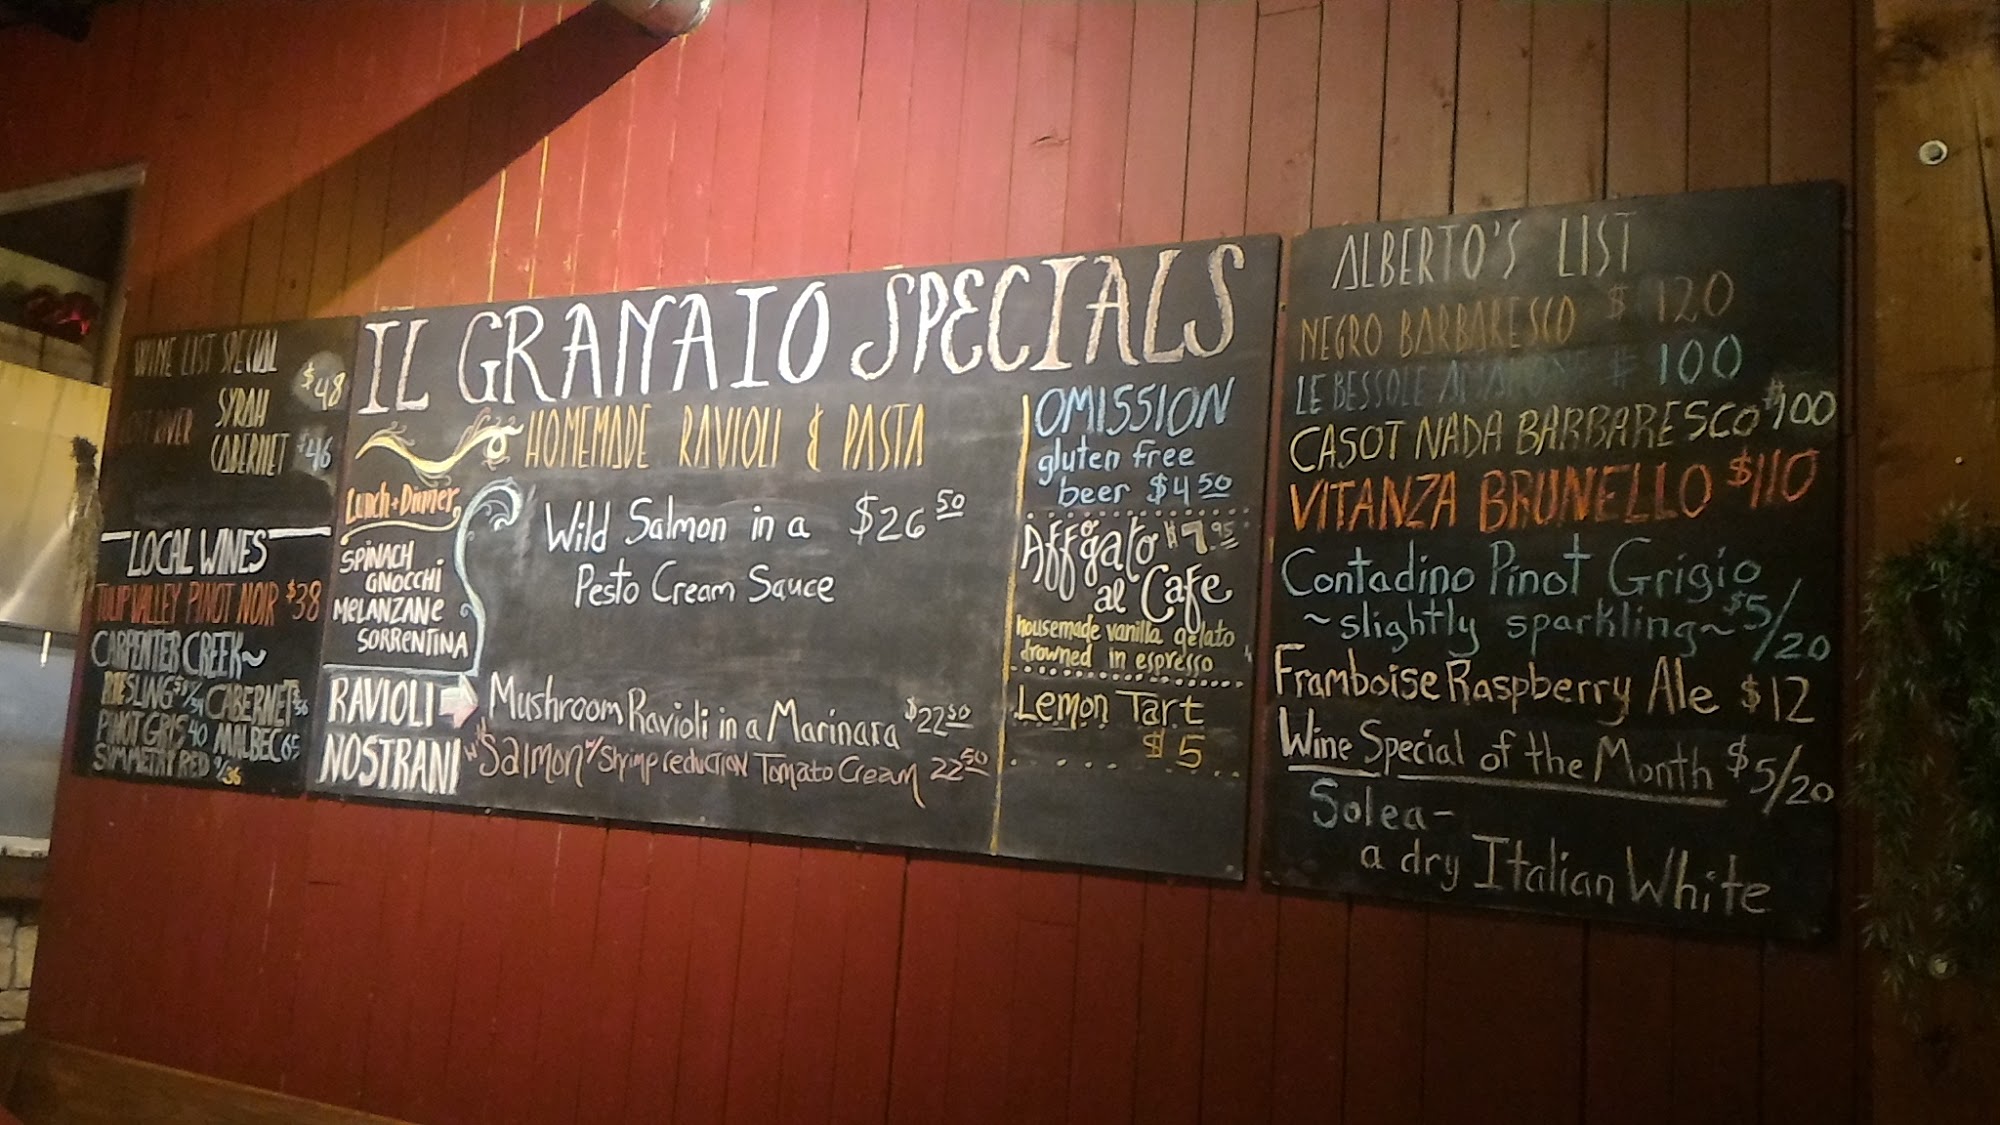 WINE LIST SPECIAL
SYRAH $48
LOST RIVER
CABERNET $46
LOCAL WINES
TULIP VALLEY PINOT NOIR $38
CARPENTER CREEK~
RIESLING CABERNET
PINOT GRIS 40 MALBEC 65
SYMMETRY RED 9/36
IL GRANAIO SPECIALS
HOMEMADE RAVIOLI & PASTA
Lunch + Dinner
SPINACH
GNOCCHI
MELANZANE
SORRENTINA
Wild Salmon in a $26 50
Pesto Cream Sauce
RAVIOLI
NOSTRANI
Mushroom Ravioli in a Marinara $22 50
Salmon w/ Shrimp reduction Tomato Cream 22 50
OMISSION
gluten free
beer $4 50
Affogato $7.95
al Cafe
housemade vanilla gelato
drowned in espresso
Lemon Tart
$5
ALBERTO'S LIST
NEGRO BARBARESCO $120
LE BESSOLE 100
CASOT NADA BARBARESCO $100
VITANZA BRUNELLO $110
Contadino Pinot Grigio
~slightly sparkling~ $5/20
Framboise Raspberry Ale $12
Wine Special of the Month $5/20
Solea-
a dry Italian White